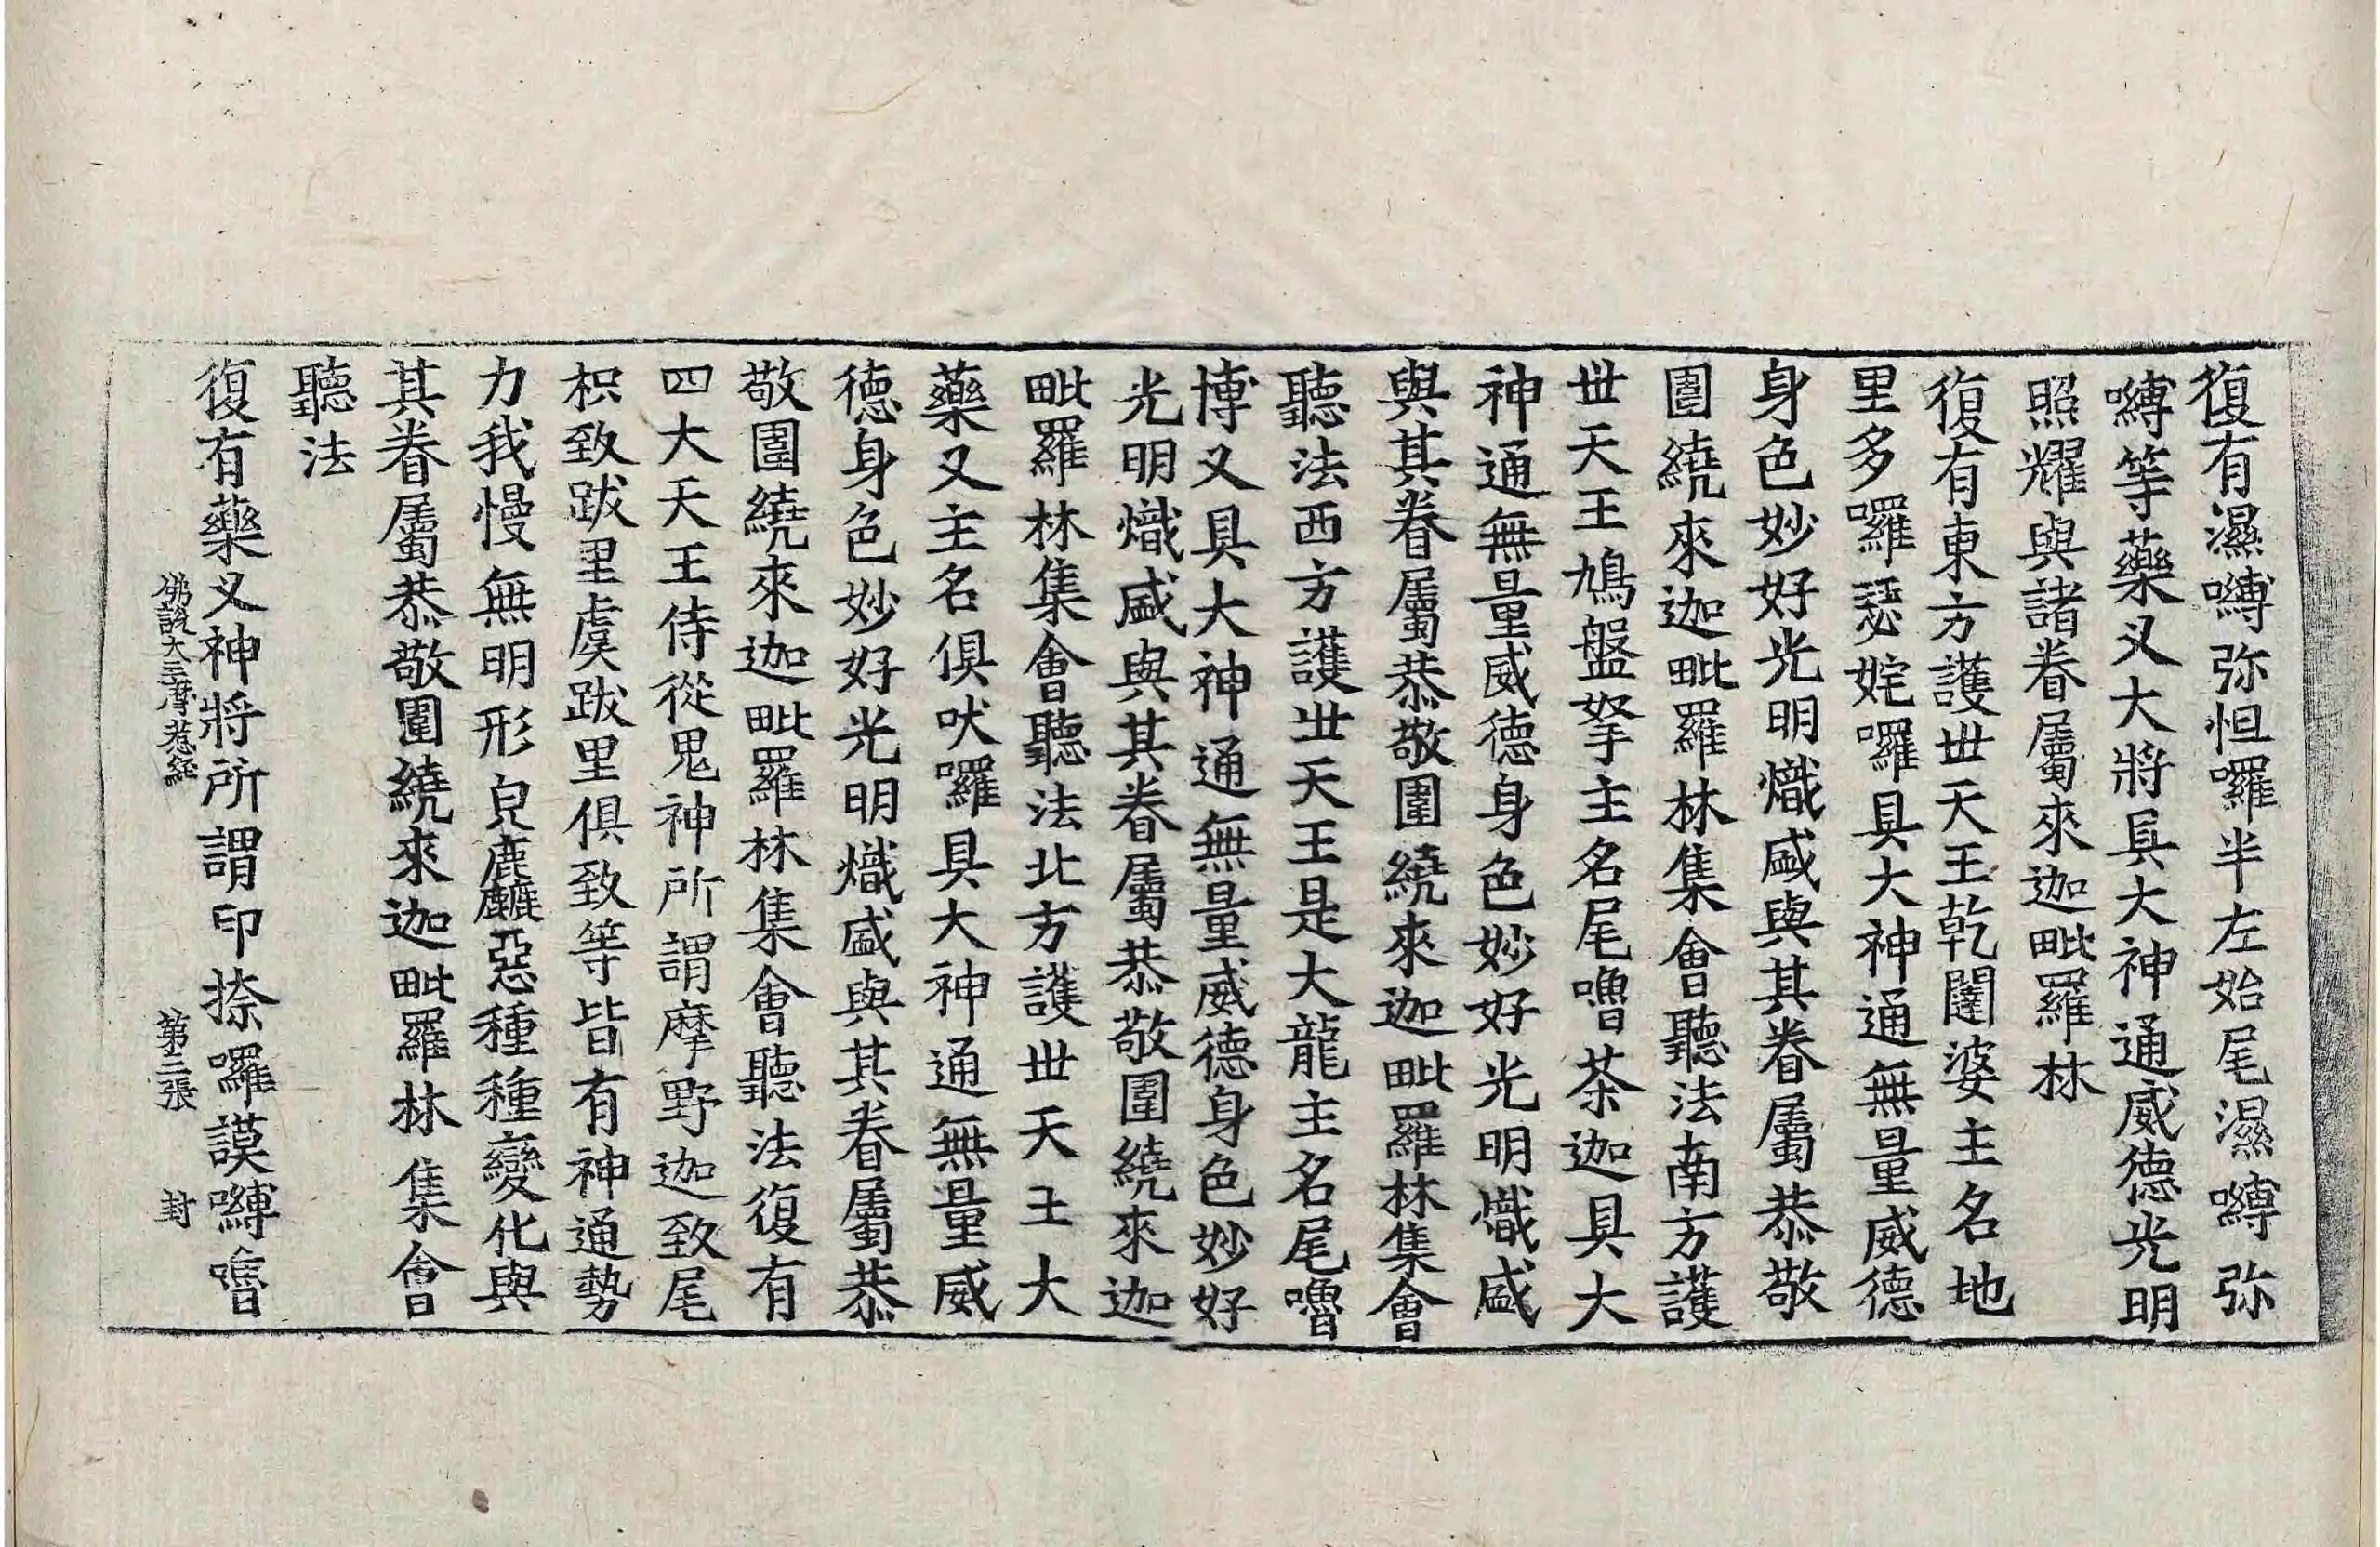 復有濕嚩弥怛囉半左始尾濕嚩弥
嚩等藥叉大將具大神通威德光明
照耀與諸眷屬來迦毗羅林
復有東方護世天王乾闥婆主名地
里多囉瑟姹囉具大神通無量威德
身色妙好光明熾盛與其眷屬恭敬
圍繞來迦毗羅林集會聽法南方護
世天王鳩盤拏主名尾嚕茶迦具大
神通無量威德身色妙好光明熾盛
與其眷屬恭敬圍繞來迦毗羅林集會
聽法西方護世天王是大龍主名尾嚕
博叉具大神通無量威德身色妙好
光明熾盛與其眷屬恭敬圍繞來迦
毗羅林集會聽法北方護世天王大
藥叉主名俱吠囉具大神通無量威
德身色妙好光明熾盛與其眷屬恭
敬圍繞來迦毗羅林集會聽法復有
四大天王侍從鬼神所謂摩野迦致尾
枳致跋里虞跋里俱致等皆有神通勢
力我慢無明形皃麁麤惡種種變化與
其眷屬恭敬圍繞來迦毗羅林集會
聽法
復有藥叉神將所謂印捺囉謨嚩嚕
佛說大三摩惹経 第三張 封